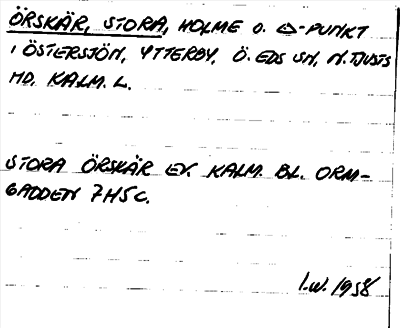 ÖRSKÄR, STORA, HOLME O. △-PUNKT
I ÖSTERSJÖN, YTTERBY, Ö. EDS SN, N. TJUSTS
HD. KALM. L.
STORA ÖRSKÄR EK. KALM. BL. ORM-
GADDEN 7H5C.
I.W. 1958